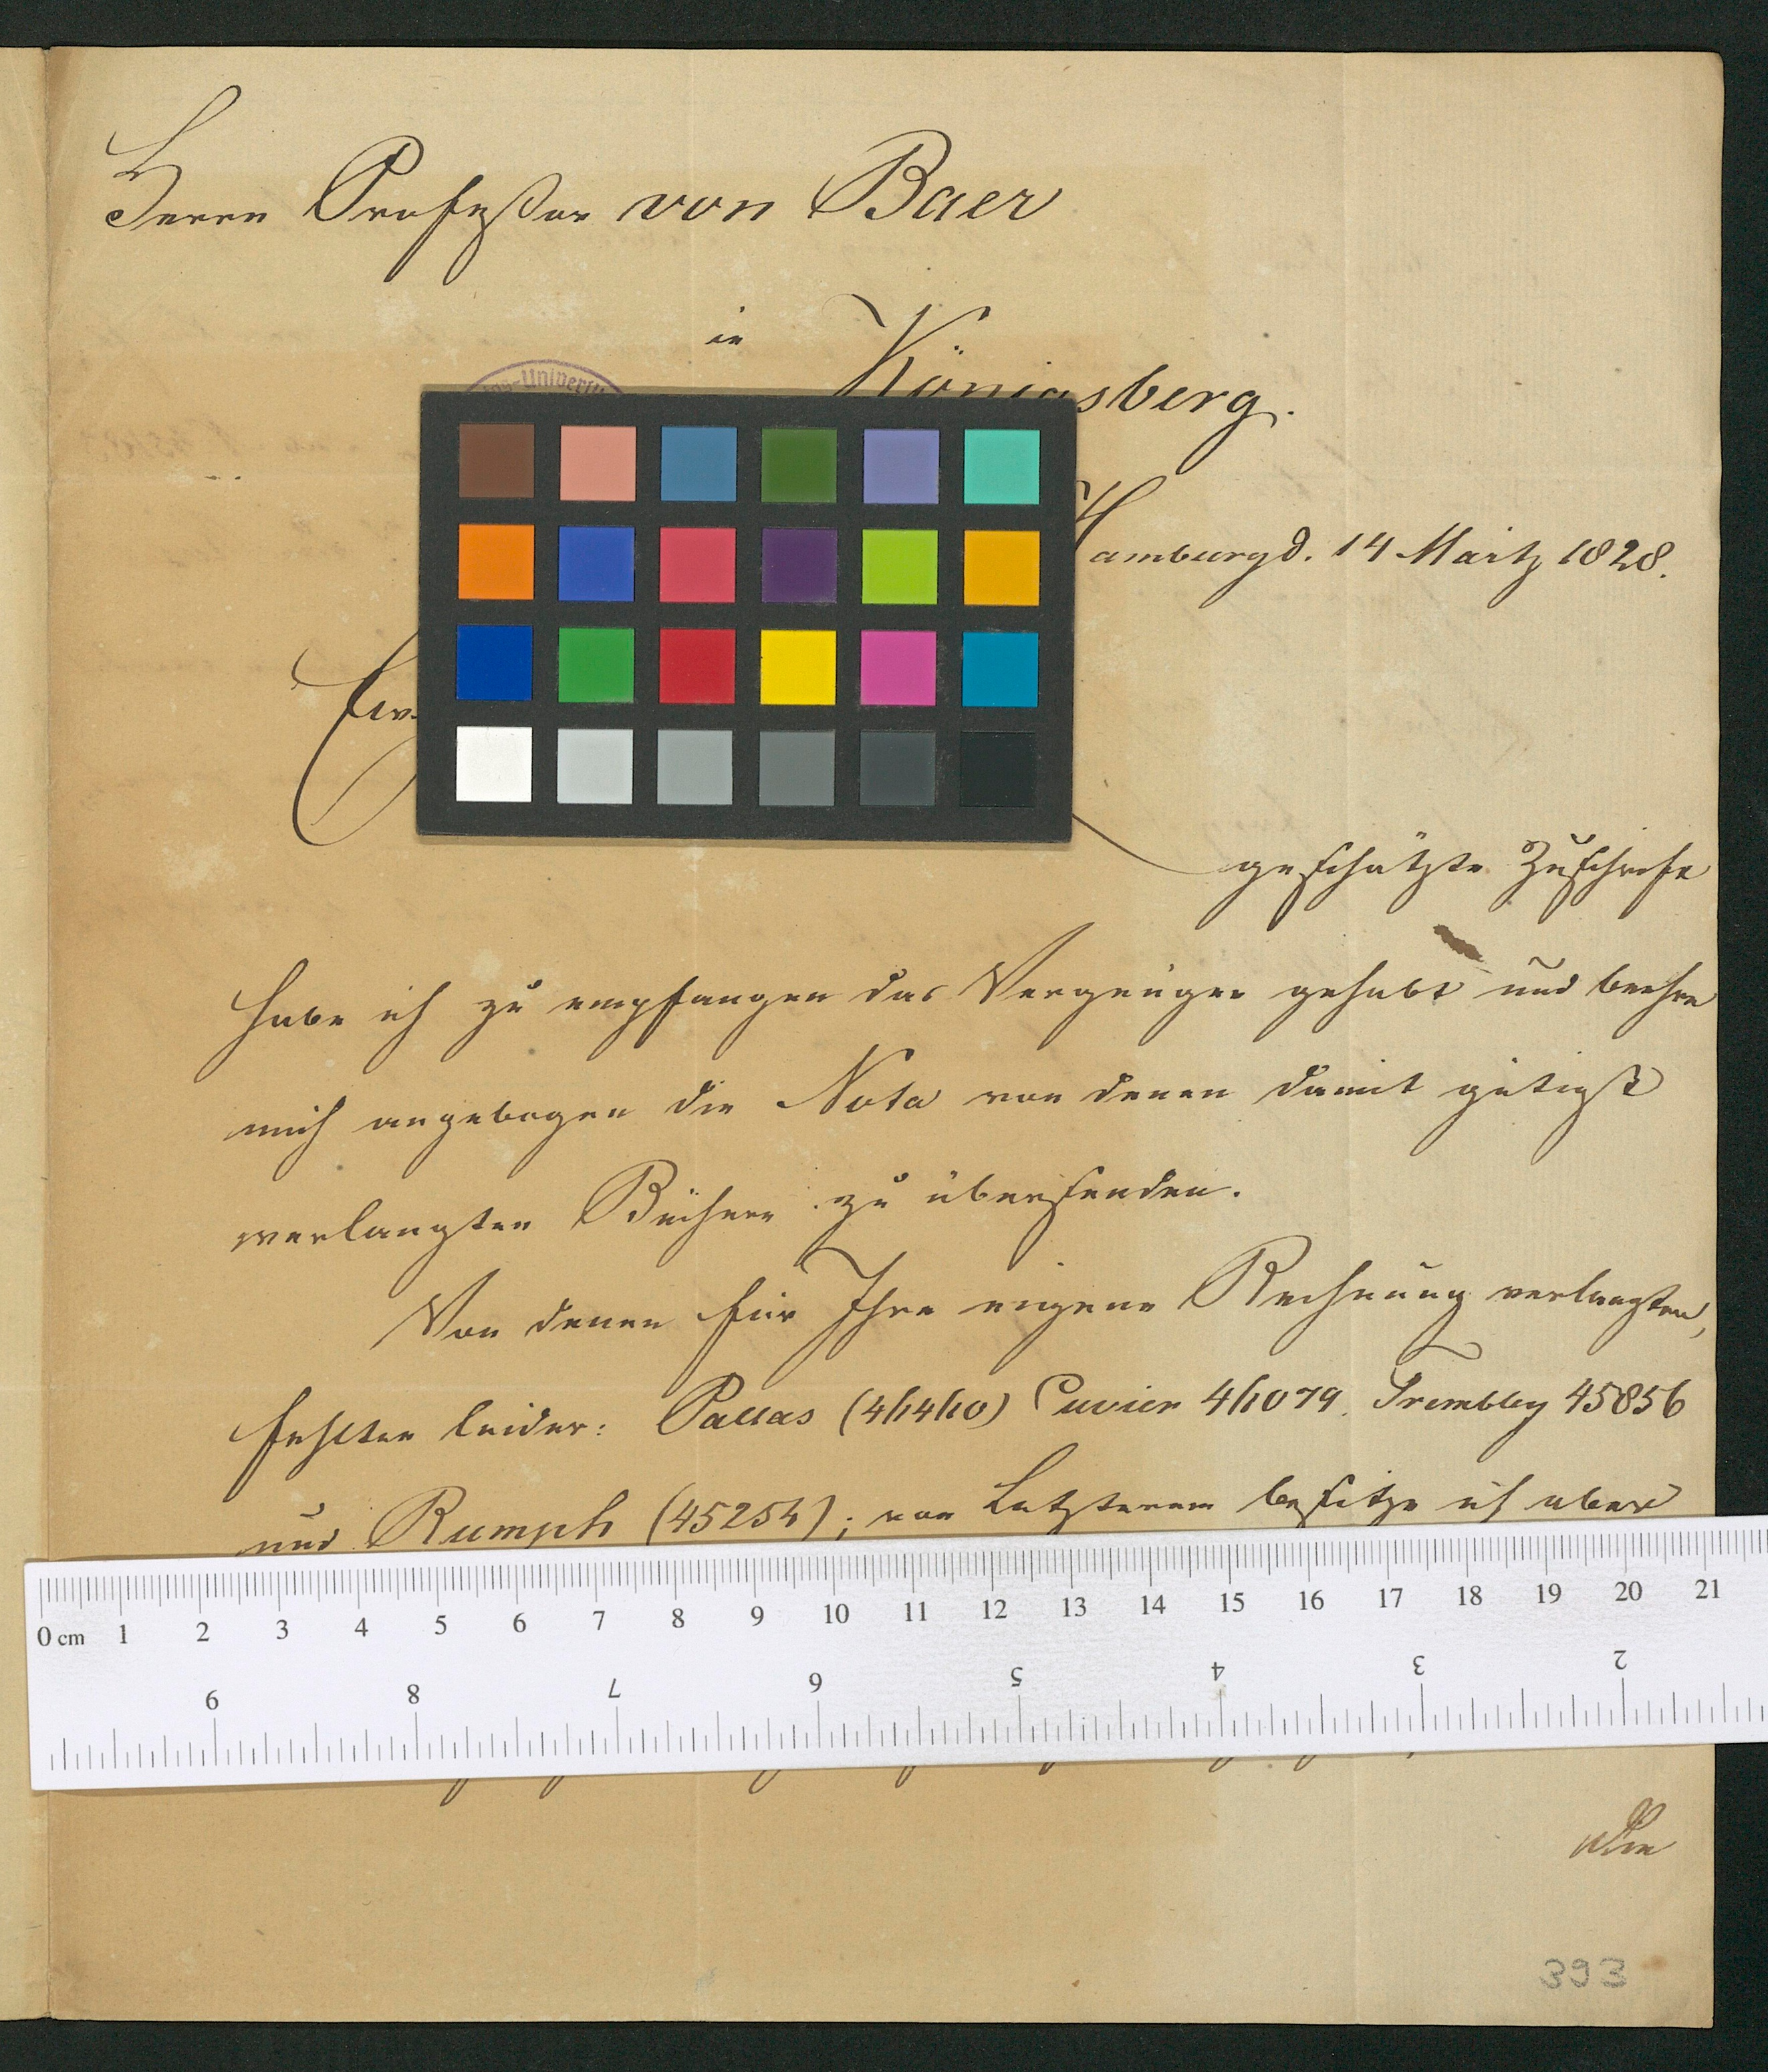 Herrn Professor von Baer
in Königsberg.
Hamburg d. 14 Märtz 1828.
Ew.
geschätzte Zuschrift
habe ich zu empfangen das Vergnügen gehabt und beehre
mich angebogen die Nota von denen damit gütigst
verlangten Bücher zu übersenden.
Von denen für Ihre eigene Rechnung verlangten,
fehlten leider: Pallas (44440) Cuvier 44079. Trembley 45856
und Rumph (45254); von Letzterem besitze ich aber
0 cm 1 2 3 4 5 6 7 8 9 10 11 12 13 14 15 16 17 18 19 20 21
9 8 7 6 5 4 3 2
393